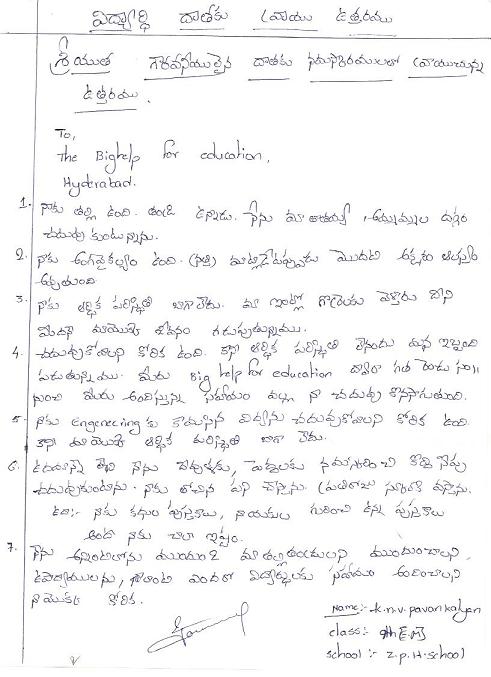 విద్యార్థి దాతకు వ్రాయు ఉత్తరము
శ్రీయుత గౌరవనీయులైన దాతకు నమస్కారములతో వ్రాయుచున్న
ఉత్తరము.
To,
The Bighelp for education,
Hyderabad.
1. నాకు తల్లి ఉంది. తండ్రి ఉన్నాడు. నేను మా తాతయ్య, అమ్మమ్మల దగ్గర
చదువుకుంటున్నాను.
2. నాకు అంగవైకల్యం ఉంది. (నత్తి) మాట్లాడేటప్పుడు మొదటి అక్షరం ఆలస్యం
అవ్వుతుంది.
3. నాకు ఆర్థిక పరిస్థితి బాగా లేదు. మా ఇంట్లో గొర్రెలకు వెళ్తారు దాని
మీదనే మాయొక్క జీవనం గడుపుతున్నాము.
4. చదువుకోవాలని కోరిక ఉంది. కాని ఆర్థిక పరిస్థితి లేనందు వలన ఇబ్బంది
పడుతున్నాము. మీరు Big help for education ద్వారా గత రెండు సం||ల
నుంచి మీరు అందిస్తున్న సహాయం వల్ల నా చదువు కొనసాగుతుంది.
5. నాకు Engeneering కు కావలసిన విద్యను చదువుకోవాలని కోరిక ఉంది.
కాని మా యొక్క ఆర్థిక పరిస్థితి బాగా లేదు.
6. ఉదయాన్నే లేచి నేను దేవుళ్లకు, పెద్దలకు నమస్కరించి కొద్ది సేపు
చదువుకుంటాను. నాకు తోచిన పని చేస్తాను. ప్రతిరోజు స్కూలుకి వస్తాను.
ఉదా:- నాకు కథల పుస్తకాలు, నాయకుల గురించి ఉన్న పుస్తకాలు
అంటే నాకు చాలా ఇష్టం.
7. నేను అన్నింటిలోను ముందు ఉండి మా తల్లితండ్రులని
ఉపాధ్యాయులను, నాలాంటి ఎందరో విద్యార్థులకు సహాయం అందించాలని
నా యొక్క కోరిక.
Name:- K.N.V. Pavan Kalyan
class:- 9th [E.M]
school :- Z.P.H. School